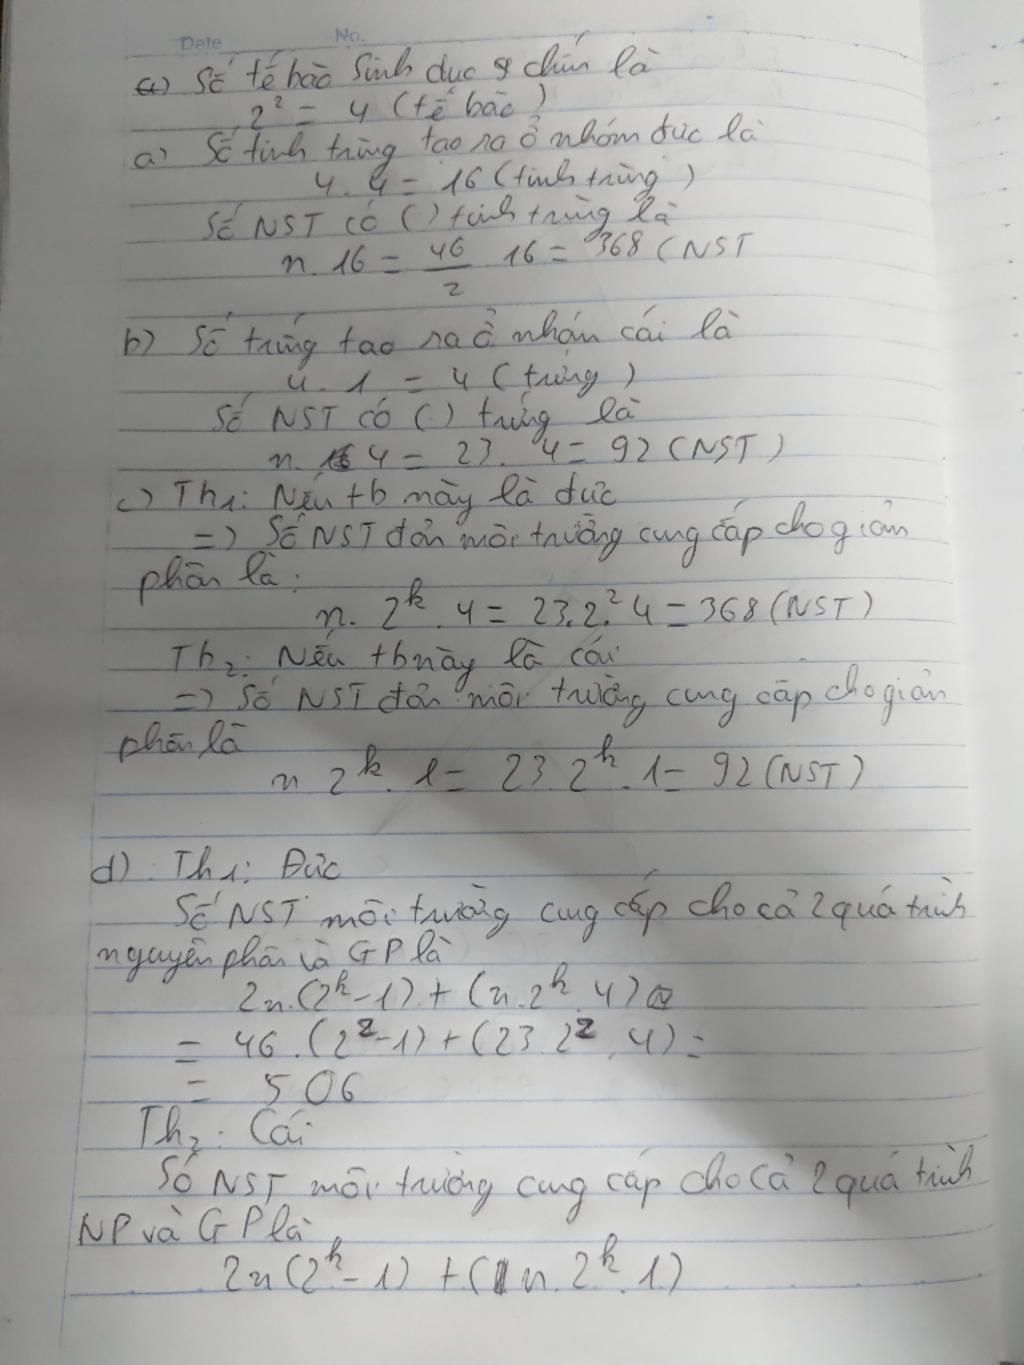 Date No.
a) Số tế bào sinh dục chín là
2² = 4 (tế bào)
a) Số tinh trùng tạo ra ở nhóm đực là
4. 4 = 16 (tinh trùng)
Số NST có ( ) tinh trùng là
n. 16 = 46/2 . 16 = 368 (NST
b) Số trứng tạo ra ở nhóm cái là
4. 1 = 4 (trứng)
Số NST có ( ) trứng là
n. 4 = 23. 4 = 92 (NST)
c) Th1: Nếu tb này là đực
=> Số NST đơn môi trường cung cấp cho giảm
phân là:
n. 2^k. 4 = 23. 2². 4 = 368 (NST)
Th2: Nếu tb này là cái
=> Số NST đơn môi trường cung cấp cho giảm
phân là
n. 2^k. 1 = 23. 2^k. 1 = 92 (NST)
d) Th1: Đực
Số NST môi trường cung cấp cho cả 2 quá trình
nguyên phân và GP là
2n.(2^k-1) + (n.2^k.4)
= 46.(2²-1) + (23.2².4) =
= 506
Th2: Cái
Số NST môi trường cung cấp cho cả 2 quá trình
NP và GP là
2n(2^k-1) + (n.2^k.1)